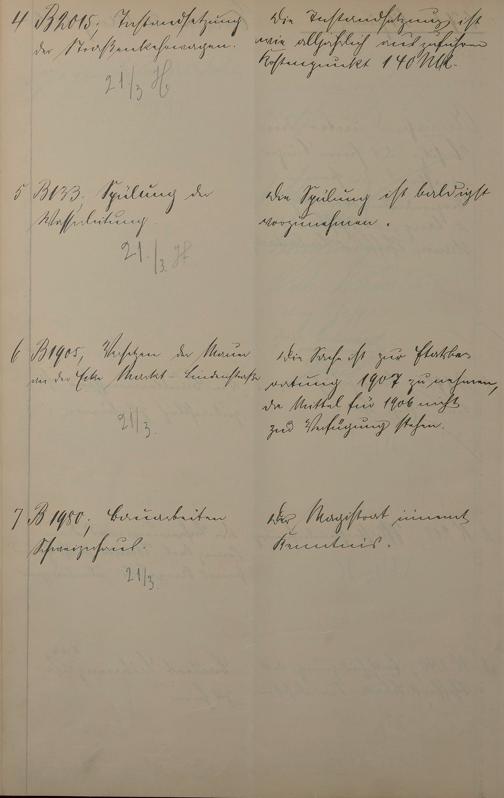 4 B2015, Instandsetzung
der Straßenkehrwagen.
21/3 H
Die Instandsetzung ist
wie alljährlich auszuführen
Kostenpunkt 140 Mk.
5 B133, Spülung der
Wasserleitung.
21./3. H
Die Spülung ist baldigst
vorzunehmen.
6 B1905, Versetzen der Mauer
an der Ecke Markt-Lindenstraße
21/3.
Die Sache ist zur Etatbe-
ratung 1907 zu nehmen,
da Mittel für 1906 nicht
zur Verfügung stehen.
7 B1980, Bauarbeiten
Schweizerhaus.
21/3.
Der Magistrat nimmt
Kenntnis.